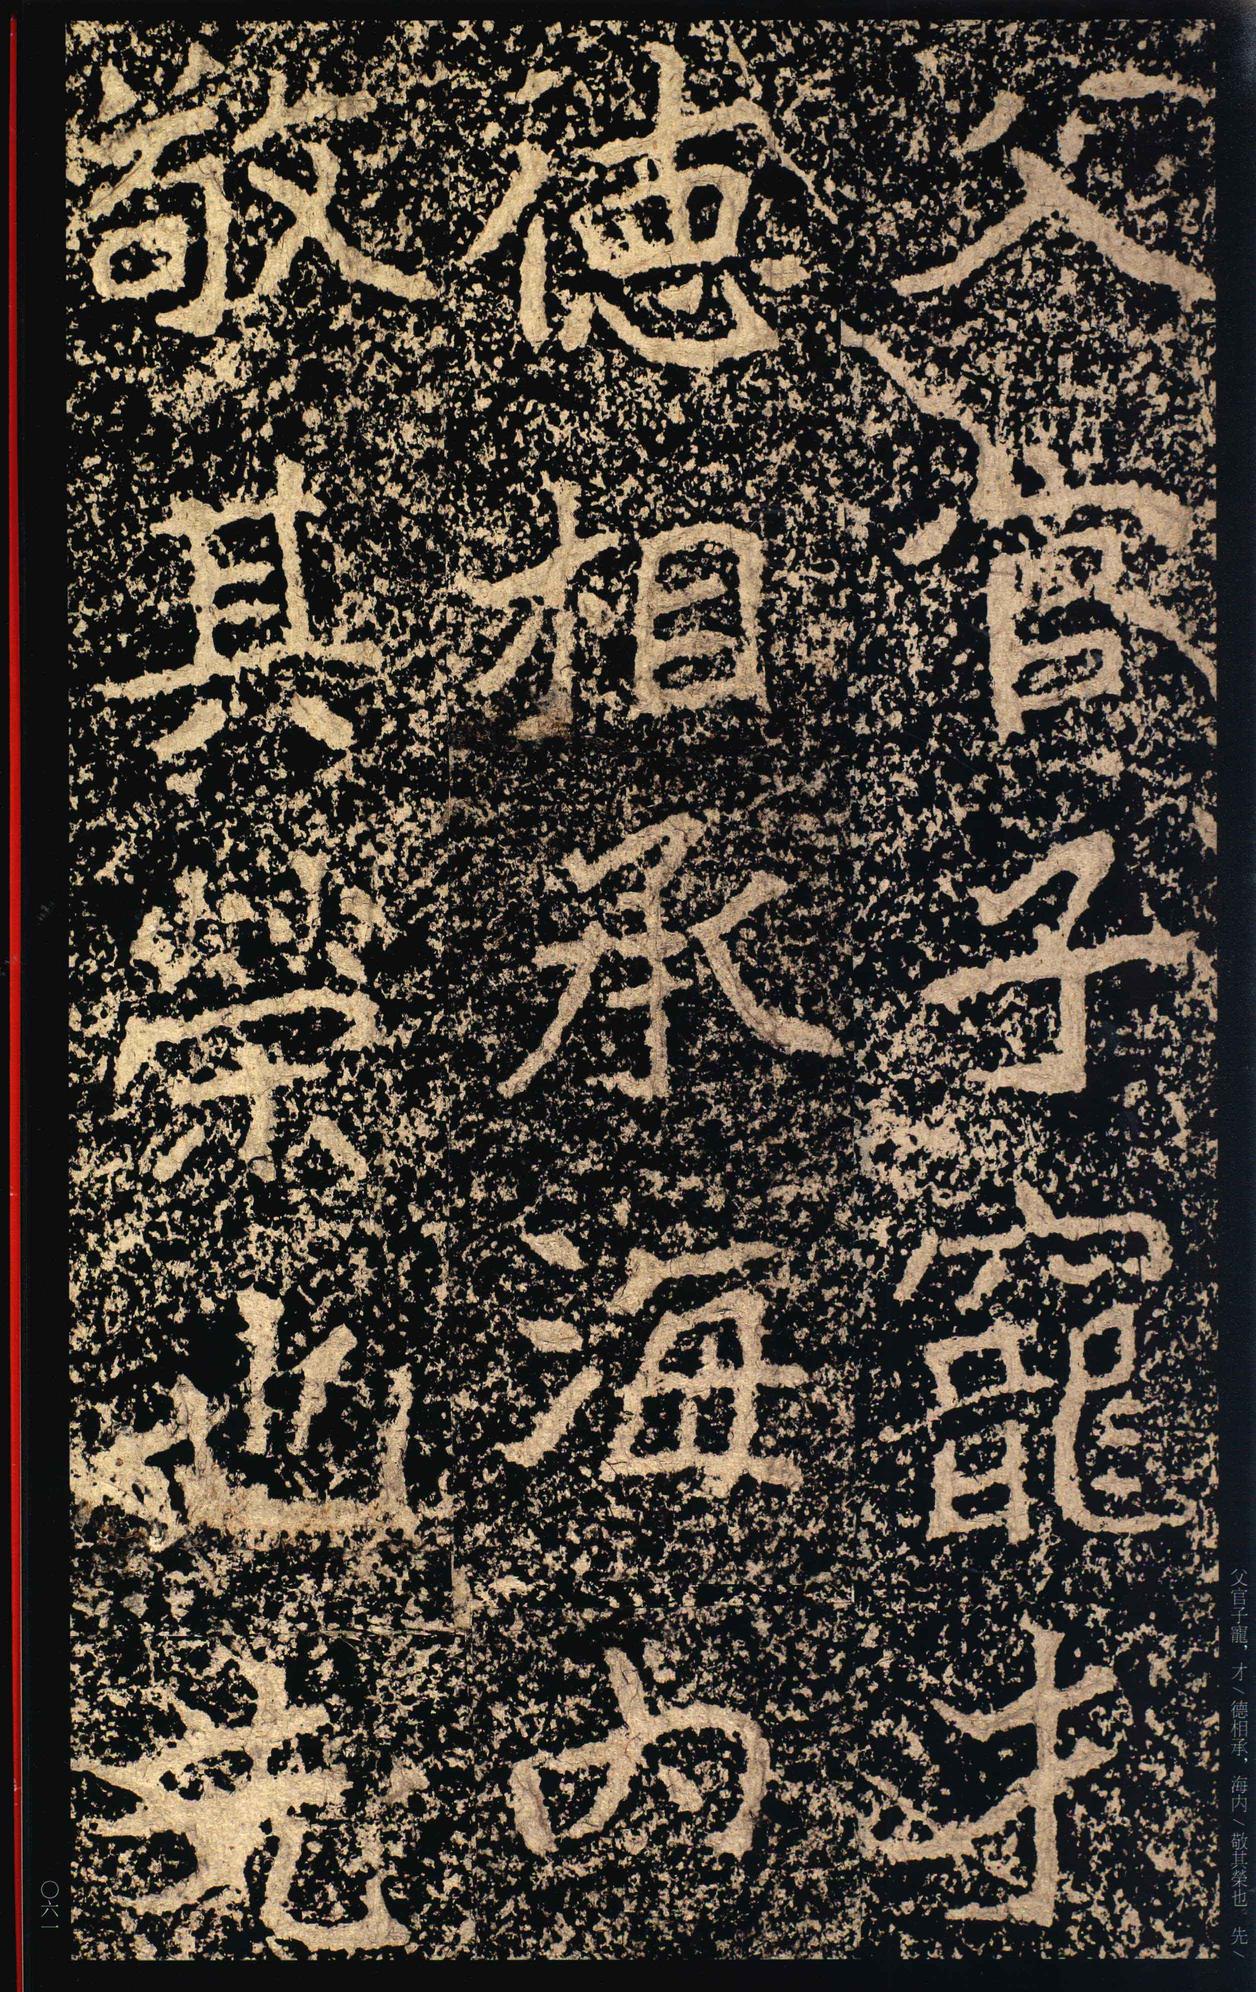 父官子寵才
德相承海内
敬其榮也先
父官子寵，才╲德相承、海内╲敬其榮也　先╲
〇六一